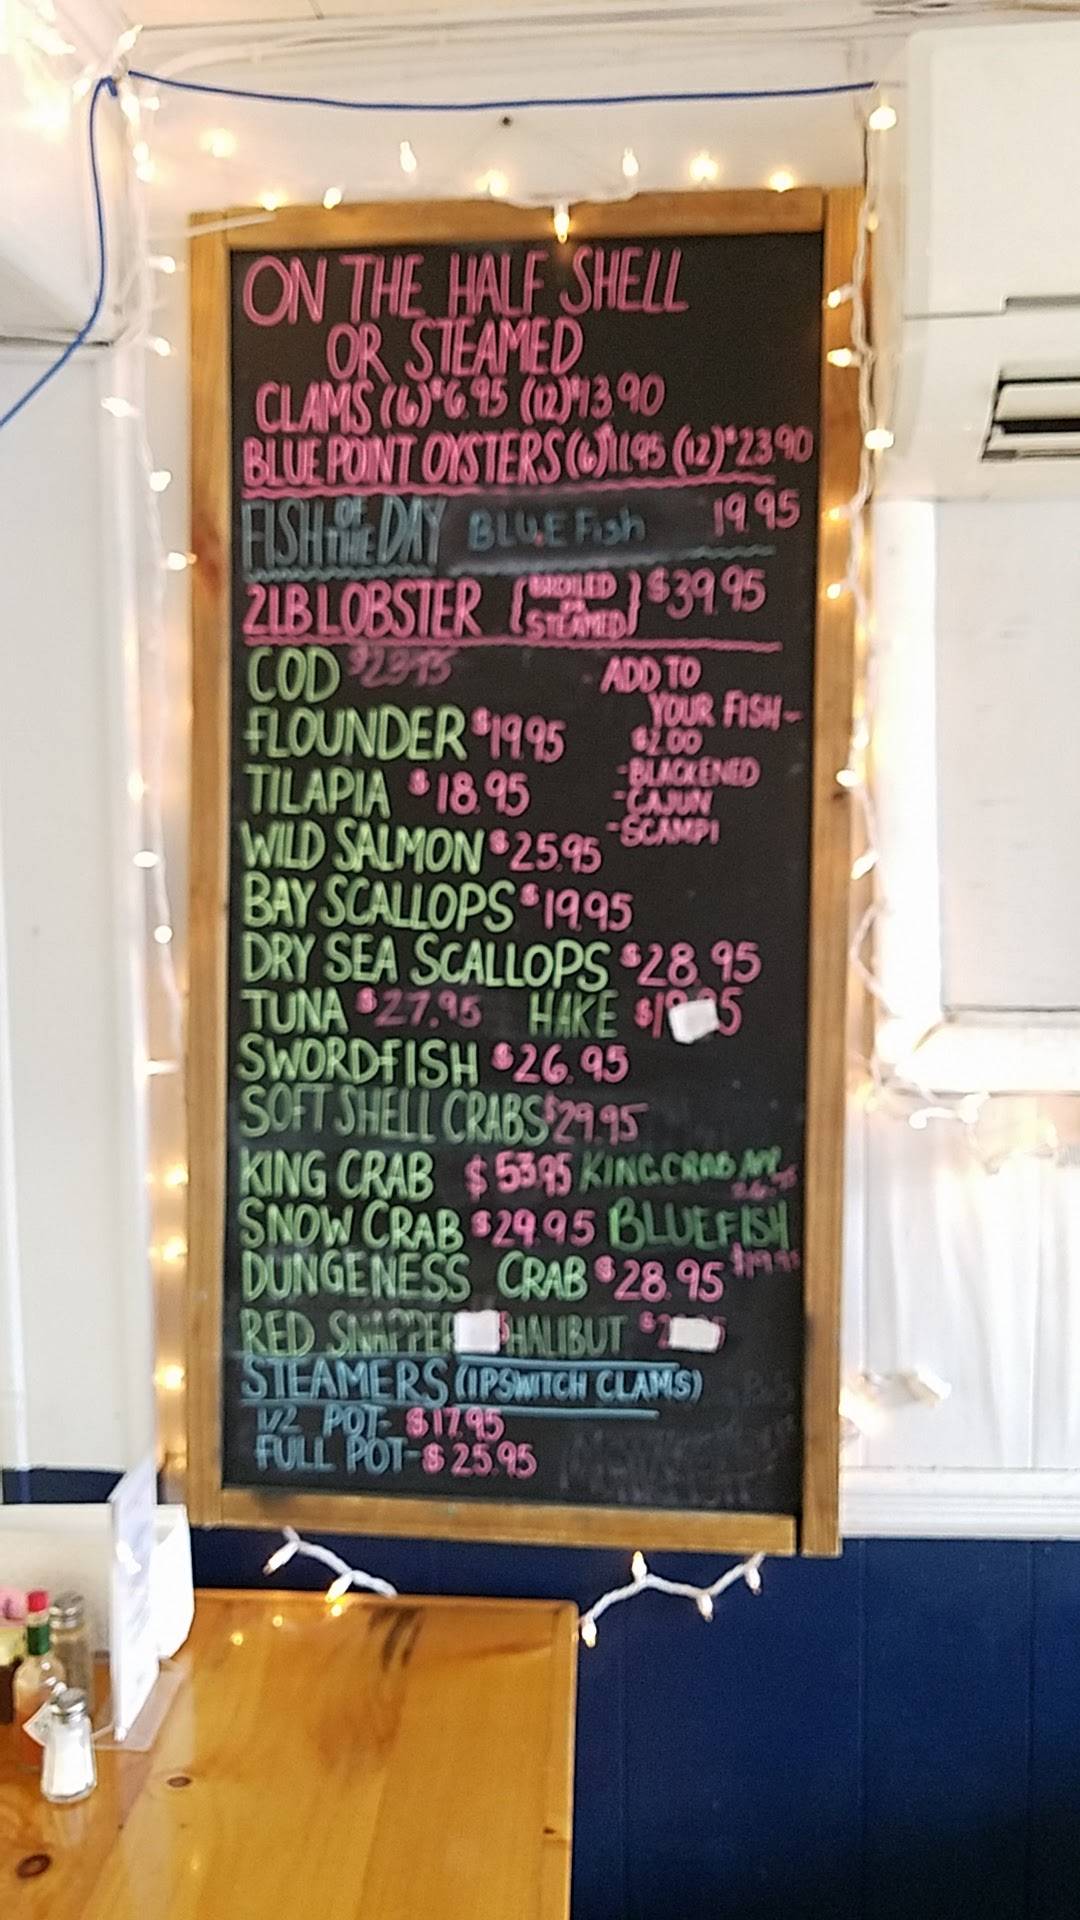 ON THE HALF SHELL
OR STEAMED
CLAMS (6) $6.95 (12) $13.90
BLUE POINT OYSTERS (6) $11.95 (12) $23.90
FISH OF THE DAY BLUE Fish 19.95
2LB LOBSTER {BROILED OR STEAMED} $39.95
COD $23.95
ADD TO
YOUR FISH-
$2.00
-BLACKENED
-CAJUN
-SCAMPI
FLOUNDER $19.95
TILAPIA $18.95
WILD SALMON $25.95
BAY SCALLOPS $19.95
DRY SEA SCALLOPS $28.95
TUNA $27.95 HAKE
SWORDFISH $26.95
SOFT SHELL CRABS $29.95
KING CRAB $53.95 KING CRAB APP
SNOW CRAB $29.95 BLUEFISH
DUNGENESS CRAB $28.95 $19.95
RED SNAPPER HALIBUT
STEAMERS (IPSWITCH CLAMS)
1/2 POT- $17.95
FULL POT- $25.95